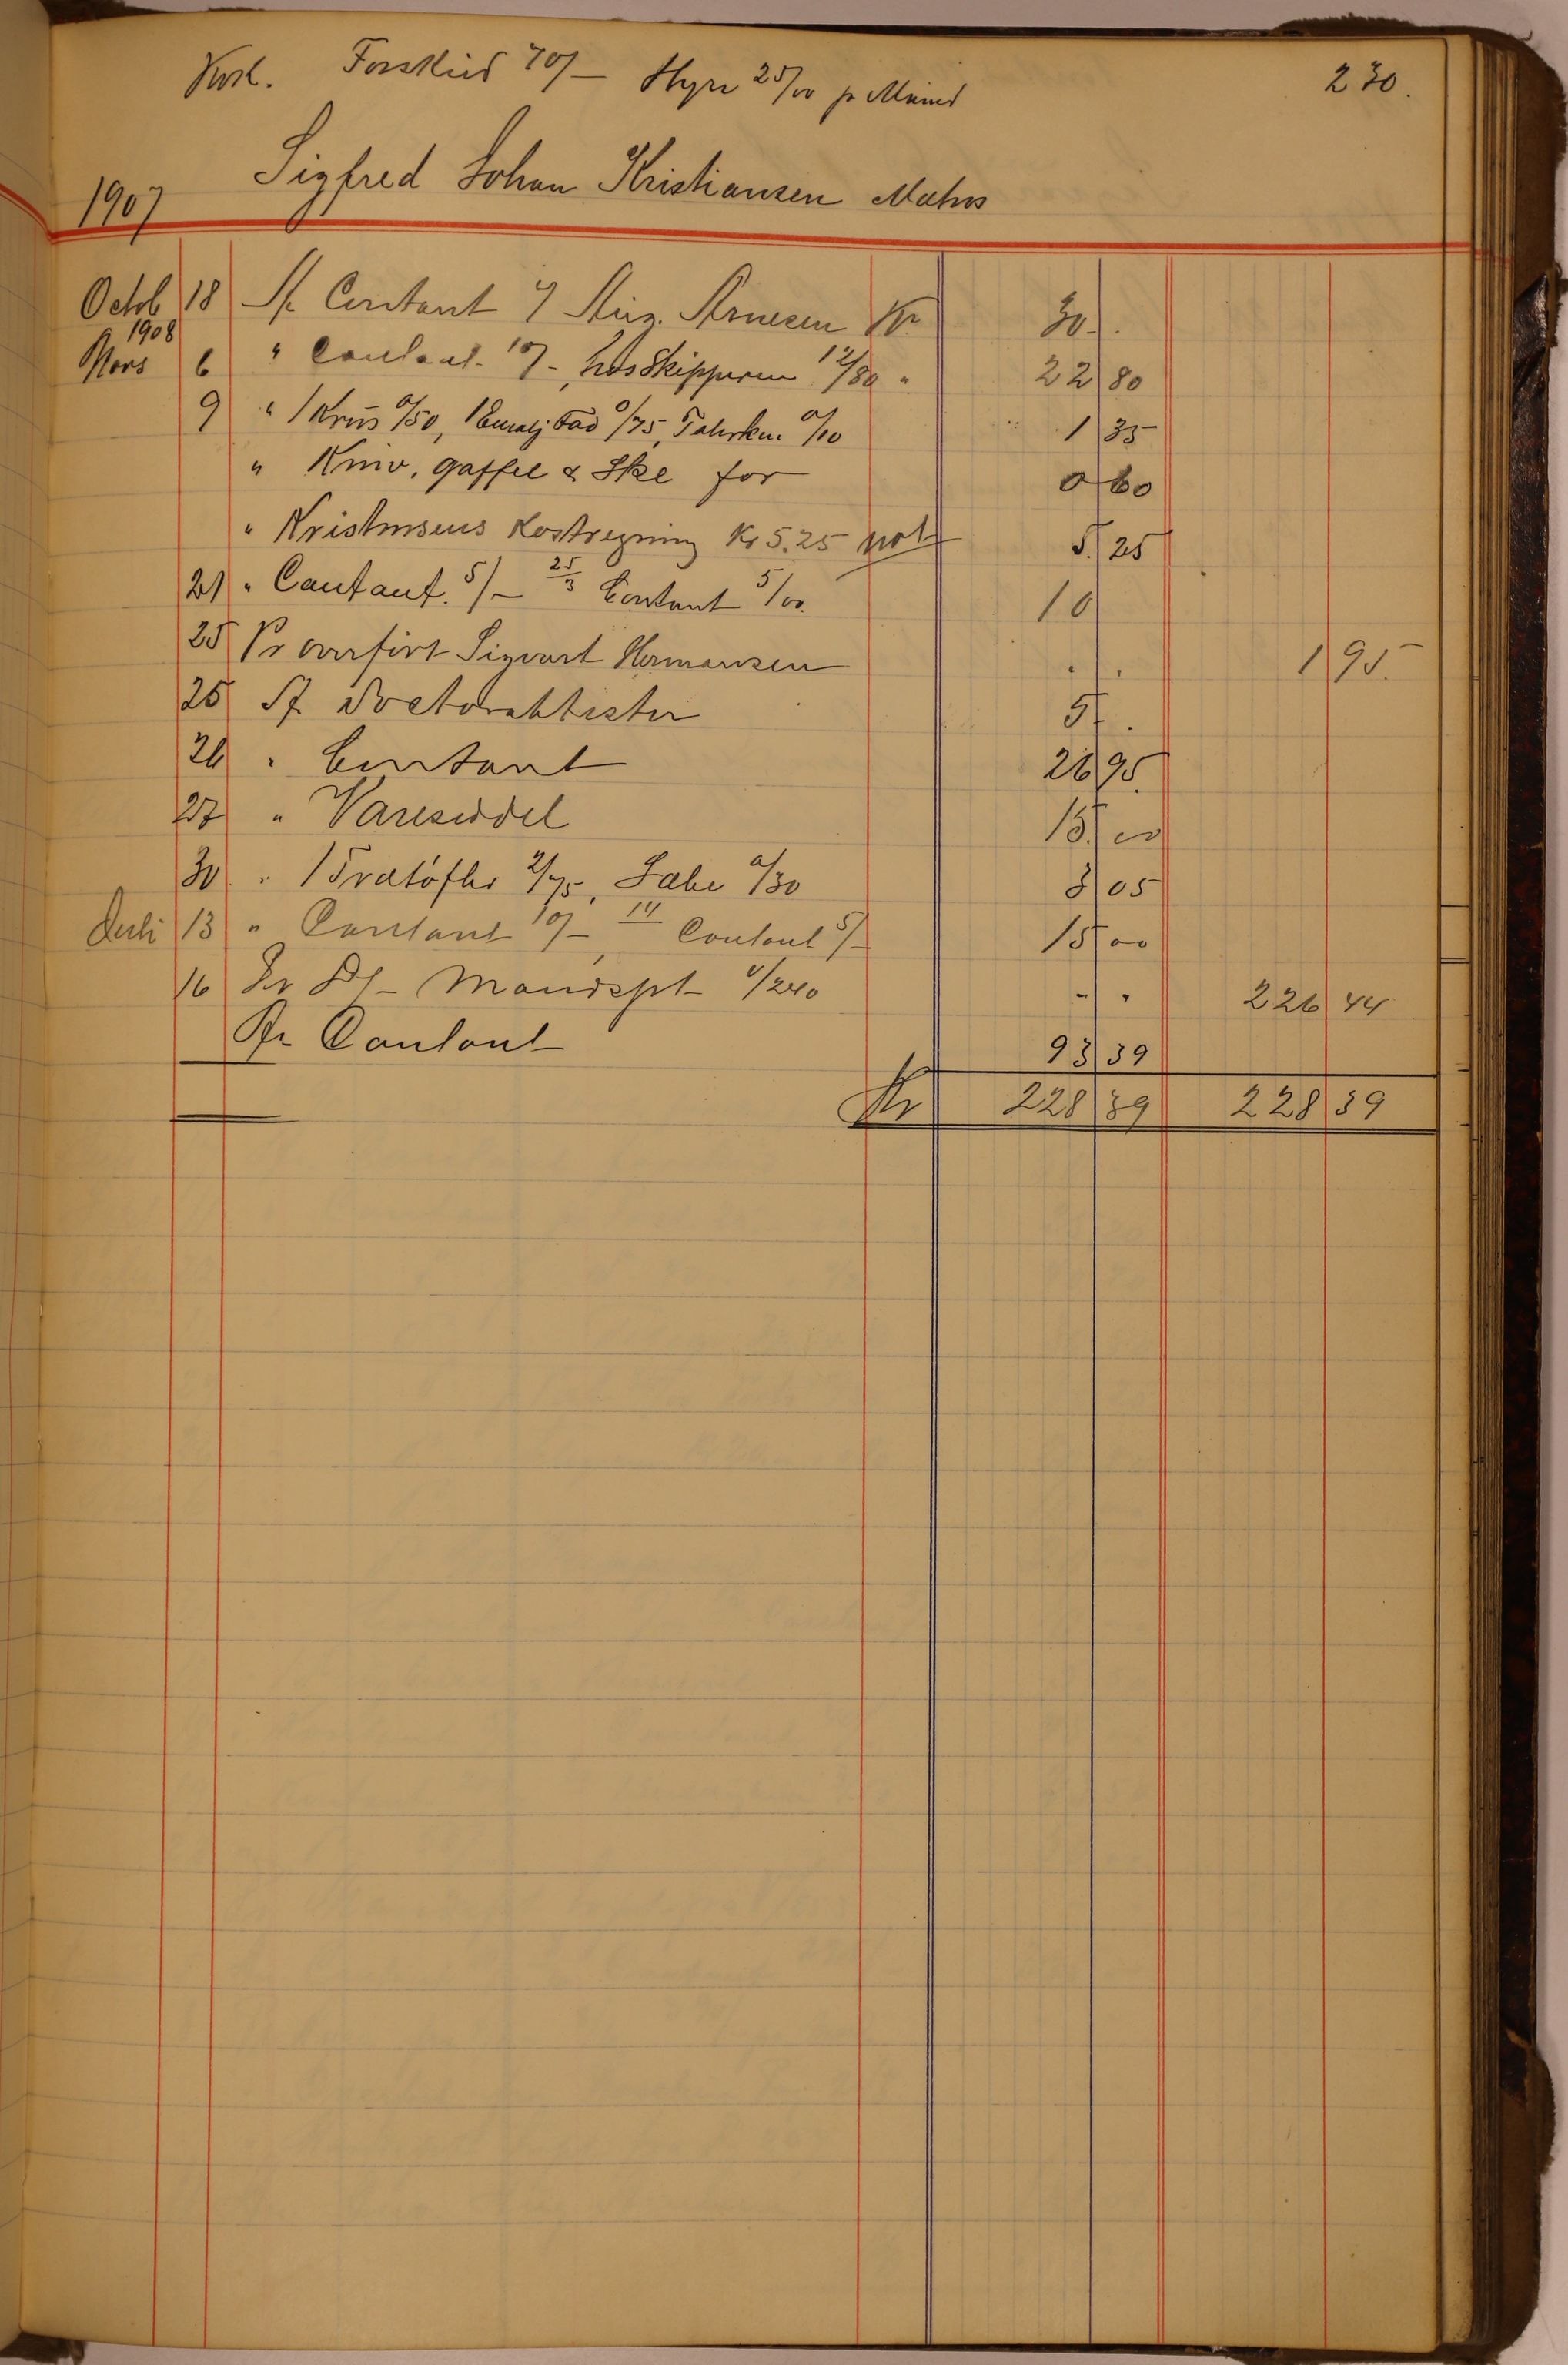 Forskud 70/— Hyre 25/00 pr Maaned 230.
1907 Sigfred Johan Kristiansen Matros
Octob 18 Contant Aug. Arnesen Kr 30. .
1908
Mars 6 " Contant 10/-, hos Skipperen 12/80 " 22 80
9 " 1 Krus 0/50, 1 Emalj Fad 0/75, Tallerken 0/10 1 35
" Kniv, gaffel & Ske for 0 60
" Kristensens Kostregning Kr 5.25 5. 25
21 " Contant. 5/— 25/3 Contant 5/00. 10
25 Pr overført Sigvart Hermansen . . 1 95.
25 At Doctorattester 5 .
26 " Contant 26 95.
27 " Vareseddel 15. 00
30 " 1 Trætøfler 2/75, Sæbe 0/30 3 05
Juli 13 " Contant 10/—, 14 Contant 5/— 15 00
16 Pr 1/240 - " 226 44
At Contant 93 39
Kr 228 39 228 39